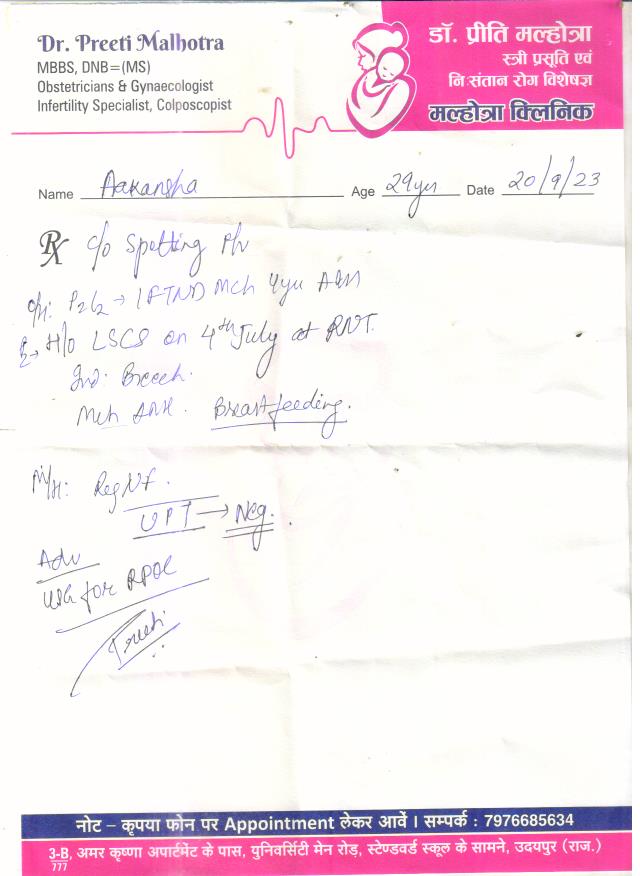 Dr. Preeti Malhotra
MBBS, DNB=(MS)
Obstetricians & Gynaecologist
Infertility Specialist, Colposcopist
डॉ. प्रीति मल्होत्रा
स्त्री प्रसूति एवं
नि:संतान रोग विशेषज्ञ
मल्होत्रा क्लिनिक
Name Aakansha Age 29yrs Date 20/9/23
Rx c/o Spotting P/v
O/H: P2L2 → 1 FTND Mch 4yrs A&H
H/o LSCS on 4th July at RNT.
Ind: Breech.
Mch A&H. Breastfeeding.
M/H: Reg NF.
UPT → Neg.
Adv
USG for RPOC
Preeti
नोट – कृपया फोन पर Appointment लेकर आवें । सम्पर्क : 7976685634
3-B, अमर कृष्णा अपार्टमेंट के पास, युनिवर्सिटी मेन रोड़, स्टेण्डवर्ड स्कूल के सामने, उदयपुर (राज.)
777